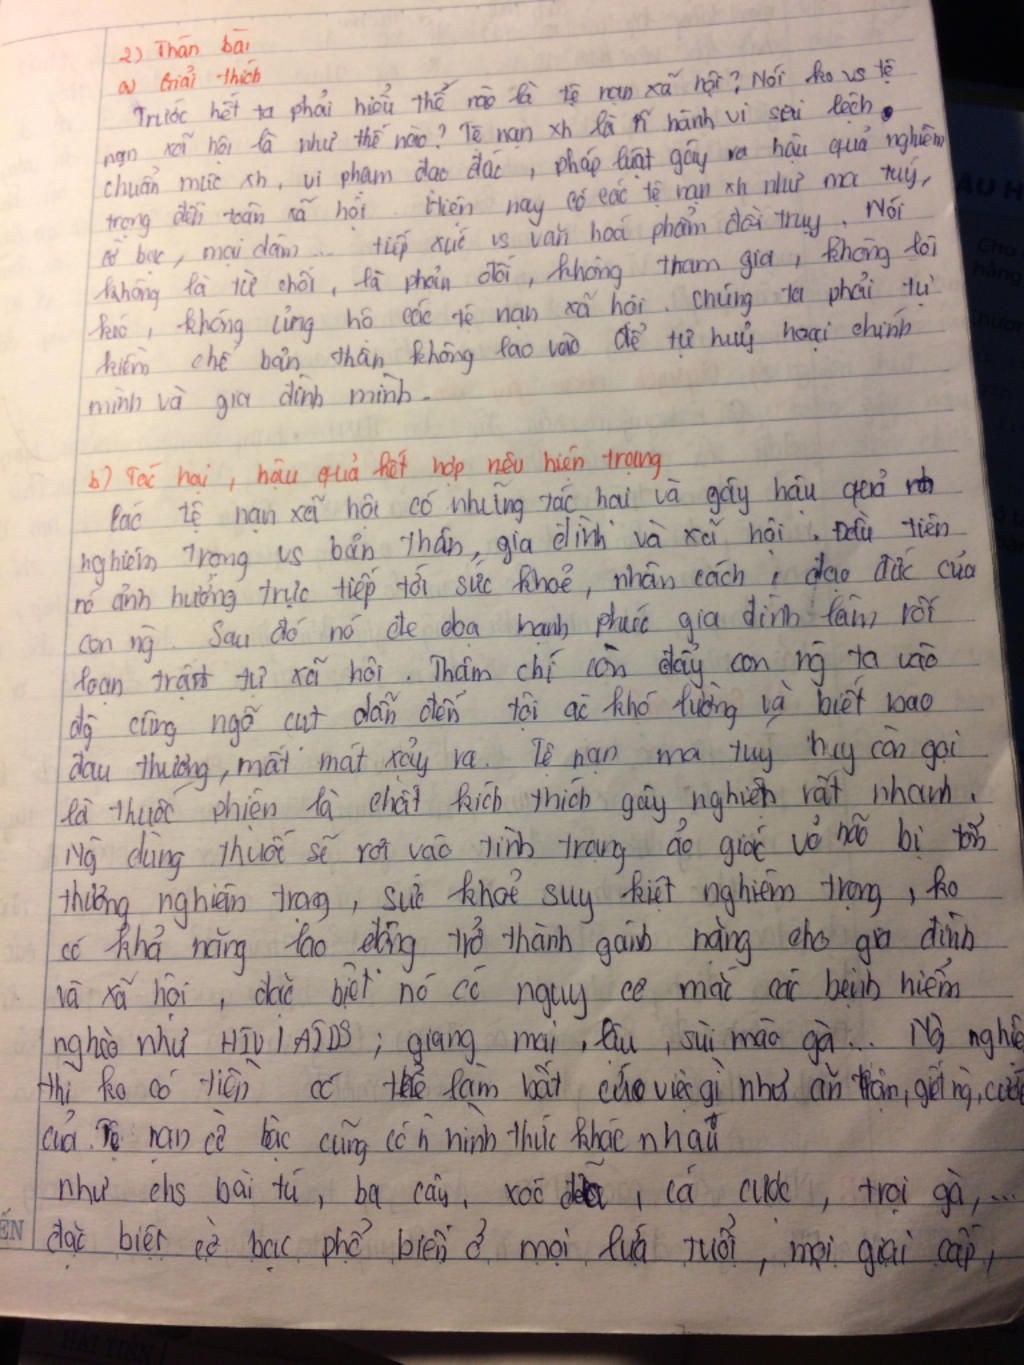 2) Thân bài
a) Giải thích
Trước hết ta phải hiểu thế nào là tệ nạn xã hội? Nói ko vs tệ
nạn xã hội là như thế nào? Tệ nạn xh là n~ hành vi sai lệch
chuẩn mực xh, vi phạm đạo đức, pháp luật gây ra hậu quả nghiêm
trọng đến toàn xã hội. Hiện nay có các tệ nạn xh như ma tuý,
cờ bạc, mại dâm... tiếp xúc vs văn hoá phẩm đồi truỵ. Nói
không là từ chối, là phản đối, không tham gia, không lôi
kéo, không ủng hộ các tệ nạn xã hội. Chúng ta phải tự
kiềm chế bản thân không lao vào để tự huỷ hoại chính
mình và gia đình mình.
b) Tác hại, hậu quả kết hợp nêu hiện trạng
Các tệ nạn xã hội có những tác hại và gây hậu quả
nghiêm trọng vs bản thân, gia đình và xã hội. Đầu tiên
nó ảnh hưởng trực tiếp tới sức khoẻ, nhân cách, đạo đức của
con ng. Sau đó nó đe doạ hạnh phúc gia đình làm rối
loạn trật tự xã hội. Thậm chí còn đẩy con ng ta vào
độ cùng ngõ cụt dẫn đến tội ác khó lường và biết bao
đau thương, mất mát xảy ra. Tệ nạn ma tuý hay còn gọi
là thuốc phiện là chất kích thích gây nghiện rất nhanh.
Ng dùng thuốc sẽ rơi vào tình trạng ảo giác vỏ não bị tổn
thương nghiêm trọng, sức khoẻ suy kiệt nghiêm trọng, ko
có khả năng lao động trở thành gánh nặng cho gia đình
và xã hội, đặc biệt nó có nguy cơ mắc các bệnh hiểm
nghèo như HIV/AIDS; giang mai, lậu, sùi mào gà... Ng nghiệ
thì ko có tiền có thể làm bất cứ việc gì như ăn trộm, giết ng, cướ
của. Tệ nạn cờ bạc cũng có n hình thức khác nhau
như chs bài tú, ba cây, xóc đĩa, cá cược, trọi gà,...
đặc biệt cờ bạc phổ biến ở mọi lứa tuổi, mọi giai cấp,
ẾN
HẢI TIẾN